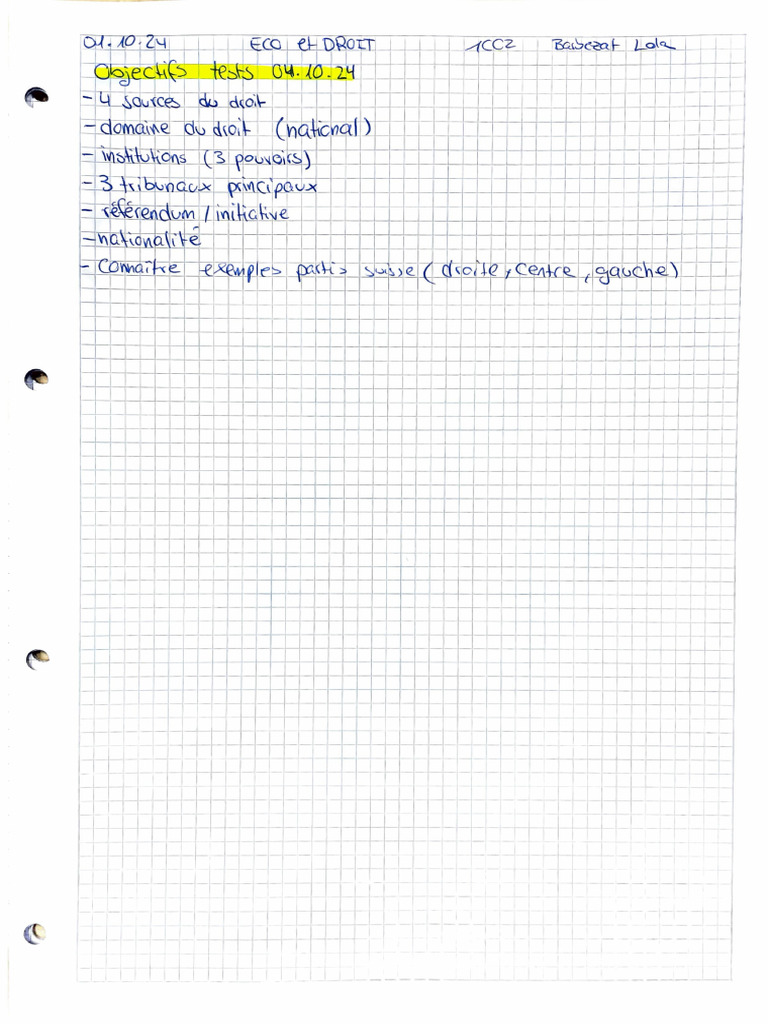 01.10.24 ECO et DROIT 1CC2 Barbezat Lola
Objectifs tests 04.10.24
- 4 sources du droit
- domaine du droit (national)
- institutions (3 pouvoirs)
- 3 tribunaux principaux
- référendum / initiative
- nationalité
- Connaître exemples partis suisse (droite, centre, gauche)